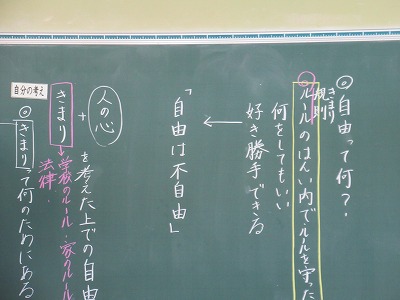 ◎自由って何?
きまり
規則
ルールのはんい内で・ルールを守った
何をしてもいい
好き勝手できる
←
「自由は不自由」
人の心
+
きまり
を考えた上での自由
→学校のルール・家のルール
法律・
自分の考え
◎きまりって何のためにある